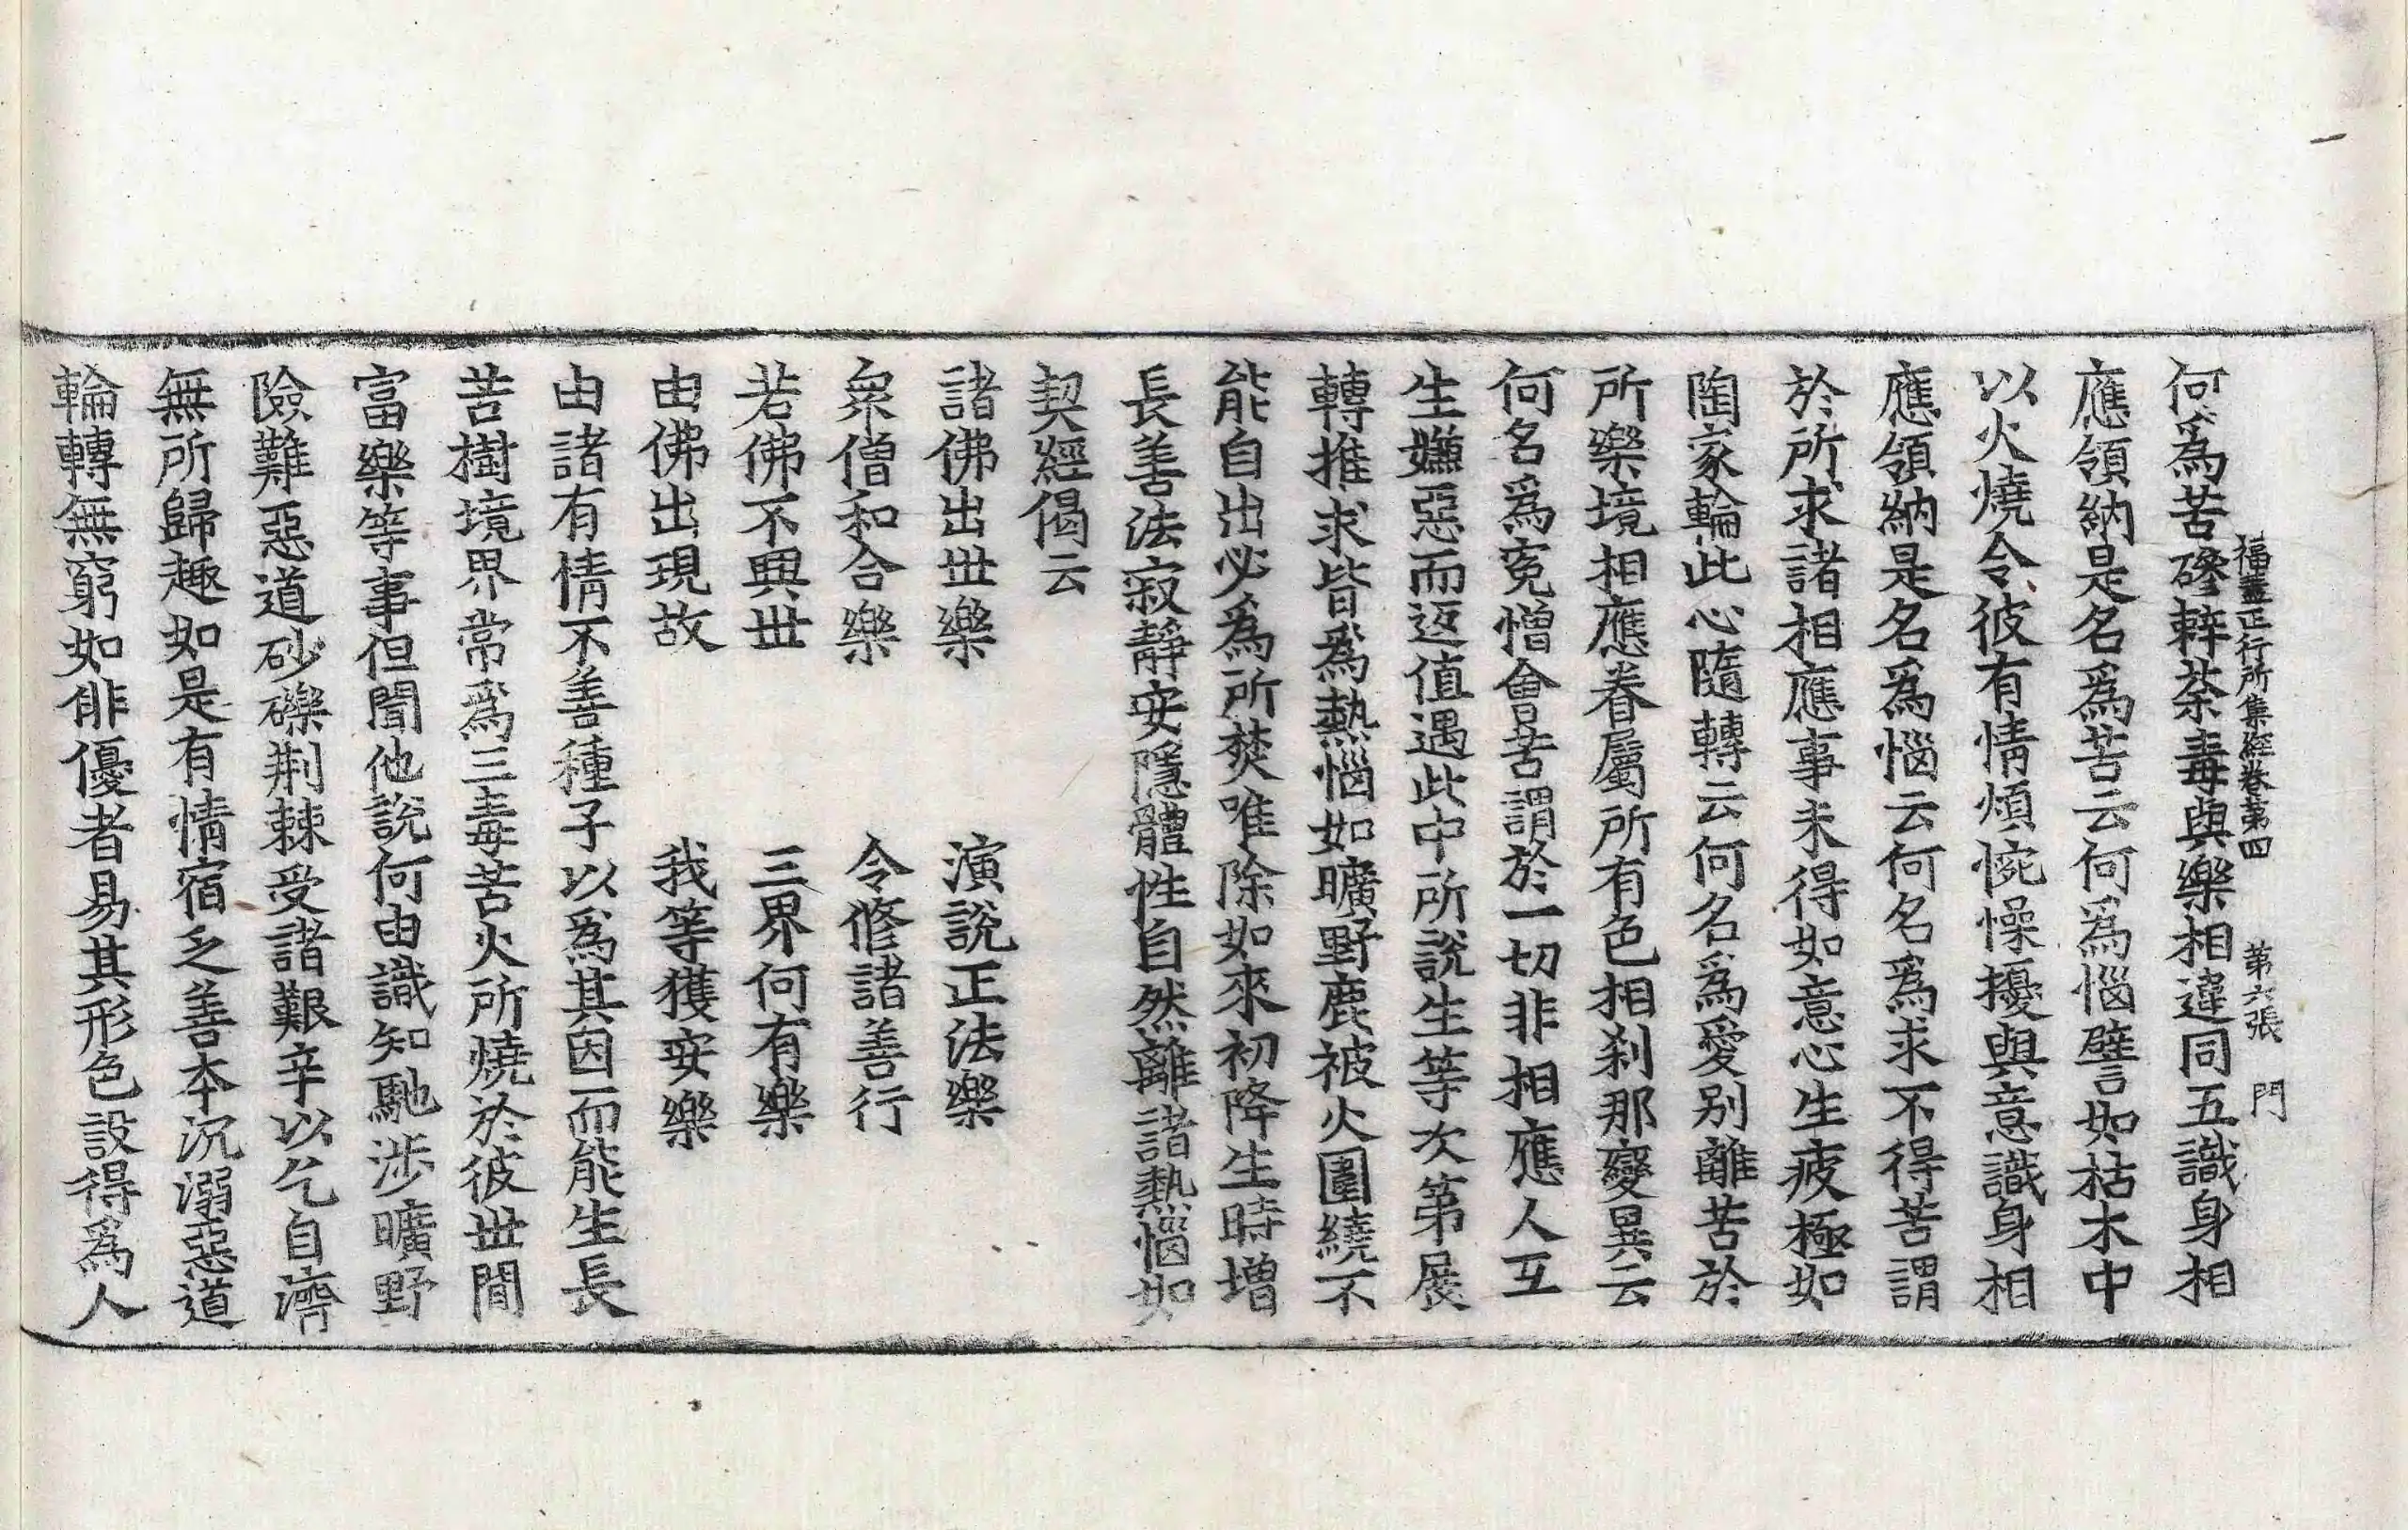 福蓋正行所集經卷第四　第六張　門
何爲苦磣辢荼毒與樂相違同五識身相
應領納是名爲苦云何爲惱譬如枯木中
以火燒令彼有情煩惋懆擾與意識身相
應領納是名爲惱云何名爲求不得苦謂
於所求諸相應事未得如意心生疲極如
陶家輪此心隨轉云何名爲愛别離苦於
所樂境相應眷屬所有色相剎那變異云
何名爲寃憎會苦謂於一切非相應人互
生嫌惡而返值遇此中所說生等次第展
轉推求皆爲熱惱如曠野鹿被火圍繞不
能自出必爲所焚唯除如來初降生時增
長善法寂靜安隱體性自然離諸熱惱如
契經偈云
諸佛出世樂　演說正法樂
衆僧和合樂　令修諸善行
若佛不興世　三界何有樂
由佛出現故　我等獲安樂
由諸有情不善種子以爲其因而能生長
苦樹境界常爲三毒苦火所燒於彼世間
富樂等事但聞他說何由識知馳涉曠野
險難惡道砂礫荆棘受諸艱辛以乞自濟
無所歸趣如是有情宿乏善本沉溺惡道
輪轉無窮如俳優者易其形色設得爲人